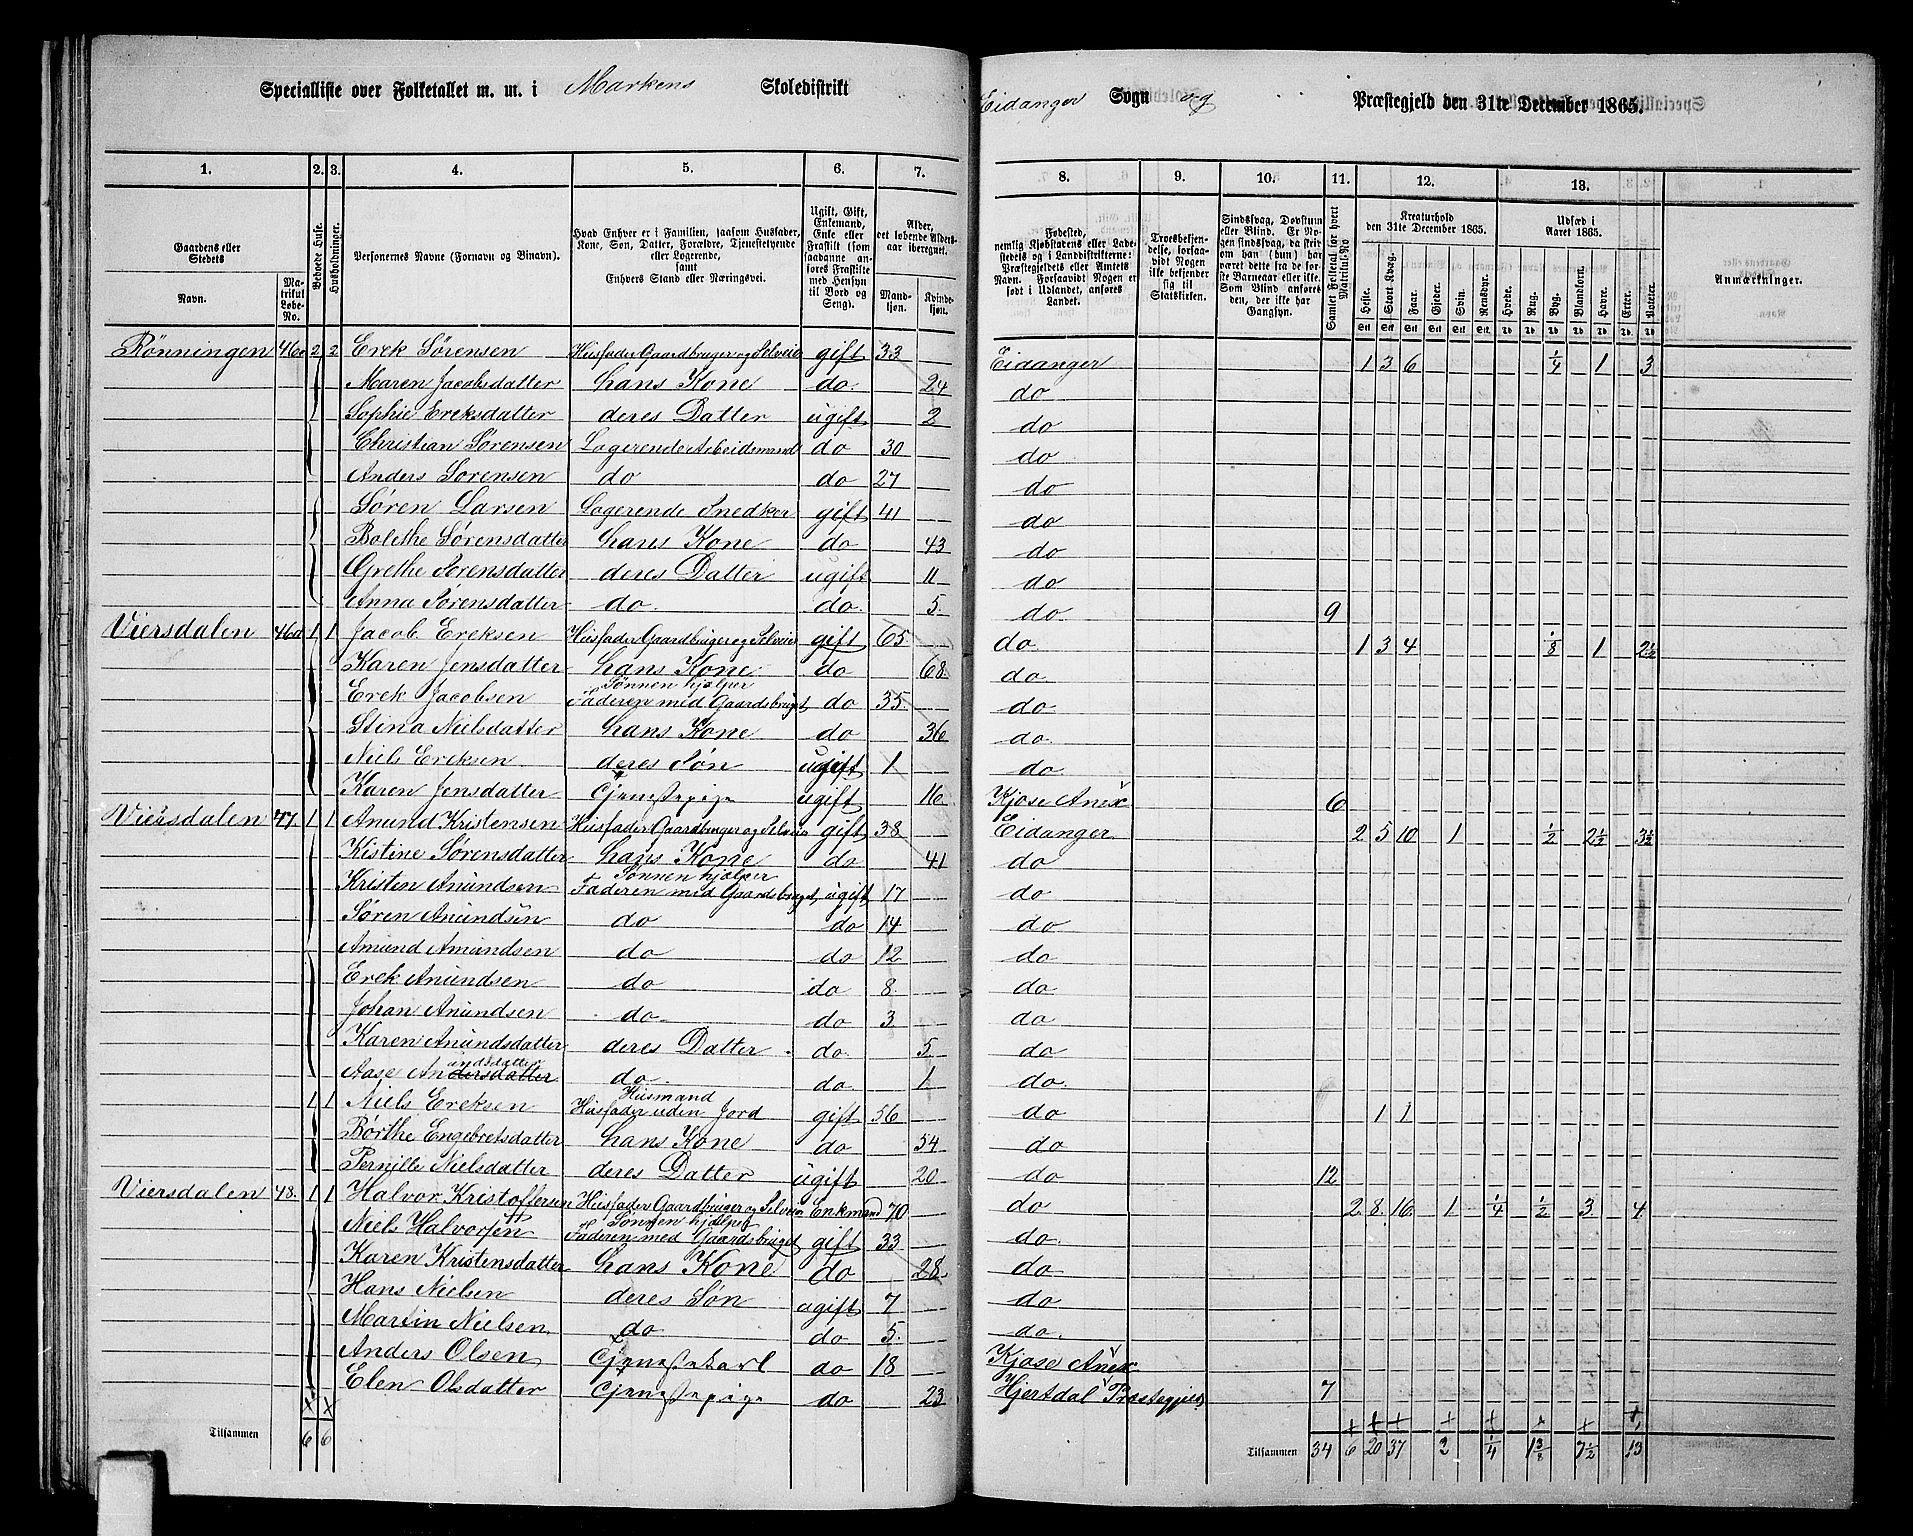 Specialliste over Folketallet m. m. i Markens Skoledistrikt Eidanger Sogn og Præstegjeld den 31te December 1865.
1. 2. 3. 4. 5. 6. 7. 8. 9. 10. 11. 12. 13.
Gaardens eller Stedets Navn. Matrikul Løbe-No. Beboede Huse. Husholdninger. Personernes Navne (Fornavn og Binavn). Hvad Enhver er i Familien, saasom Husfader, Kone, Søn, Datter, Forældre, Tjenestetyende eller Logerende, samt Enhvers Stand eller Næringsvei. Ugift, Gift, Enkemand, Enke eller Fraskilt (som saadanne anføres Fraskilte med Hensyn til Bord og Seng). Alder, det løbende Aldersaar iberegnet. Mandkjøn. Kvindekjøn.
Fødested, nemlig Kjøbstadens eller Ladestedets og i Landdistrikterne: Præstegjeldets eller Amtets Navn. Forsaavidt Nogen er født i Udlandet, anføres Landet. Troesbekjendelse, forsaavidt Nogen ikke bekjender sig til Statskirken. Sindssvag, Døvstum eller Blind. Er Nogen sindssvag, da skriv om han (hun) har været dette fra de første Barneaar eller ikke. Som Blind anføres den, der ikke har Gangsyn. Samlet Folketal for hvert Matrikul-No Kreaturhold den 31te December 1865. Heste. Stort Kvæg. Faar. Gjeder. Svin. Rensdyr. Udsæd i Aaret 1865. Hvede. Rug. Byg. Blandkorn. Havre. Erter. Poteter. Anmærkninger.
Rönningen 46a 2 2 Erek Sörensen Husfader Gaardbruger og Selveier gift 33 Eidanger 1 3 6 ¼ 1 3
Maren Jacobsdatter hans Kone do. 24 do
Sophie Ereksdatter deres Datter ugift 2 do
Christian Sörensen Logerende Arbeidsmand do 30 do
Anders Sorensen do do 27 do
Sören Larsen Logerende Snedker gift 41 do
Bolethe Sörensdatter hans Kone do 43 do
Grethe Sorensdatter deres Datter ugift 11 do
Anna Sörensdatter do. do. 5. do 9
Viersdalen 46a 1 1 Jacob Ereksen Husfader Gaardbruger og Selveier gift 65 do 1 3 4 ⅛ 1 2½
Karen Jensdatter hans Kone do 68. do
Erek Jacobsen Sönnen hjælper Faderen med Gaardsbruget do 35 do
Stina Nielsdatter hans Kone do 36 do
Niels Ereksen deres Sön ugift 1 do
Karen Jensdatter Tjenestepige ugift 16 Kjose Anex 6
Viersdalen 47 1 1 Anund Kristensen Husfader Gaardbruger og Selveier gift 38 Eidanger 2 5 10 1 ½ 2½ 3½
Kistine Sörensdatter hans Kone do 41 do
Kristen Anundsen Sönnen hjælper Faderen med Gaardsbruget ugift 17 do
Sören Anundsen do do 14 do
Amund Amundsen do do 12 do
Erek Anundsen do do 8. do
Johan Anundsen do do 3 do
Karen Anundsdatter deres Datter do. 5 do
Aase Andersdatter undsdatter do. do. 1. do.
1 1 Niels Ereksen Husmand Husfader uden Jord gift 56 do 1 1
Börthe Engebretsdatter hans Kone do 54 do
Pernille Nielsdatter deres Datter ugift 20 do 12
Viersdalen 48. 1 1 Halvor Kristoffersen Husfader Gaardbruger og Selveier Enkmand 70 do 2 8 16 1 ¼ ½ 3 4
Niels Halvorsen Sönnen hjælper Faderen med Gaardsbruget gift 33 do
Karen Kristensdatter hans Kone do 28. do
Hans Nielsen deres Sön ugift 7 do
Martin Nielsen do do 5. do.
Anders Olsen Tjenestekarl do 18 Kjose Anex
Elen Olsdatter Tjenestepige do 23 Hjertdal Præstegjeld 7
Tilsammen 6 6 Tilsammen 34 6 20 37 2 ¼ 1⅜ 7½ 13